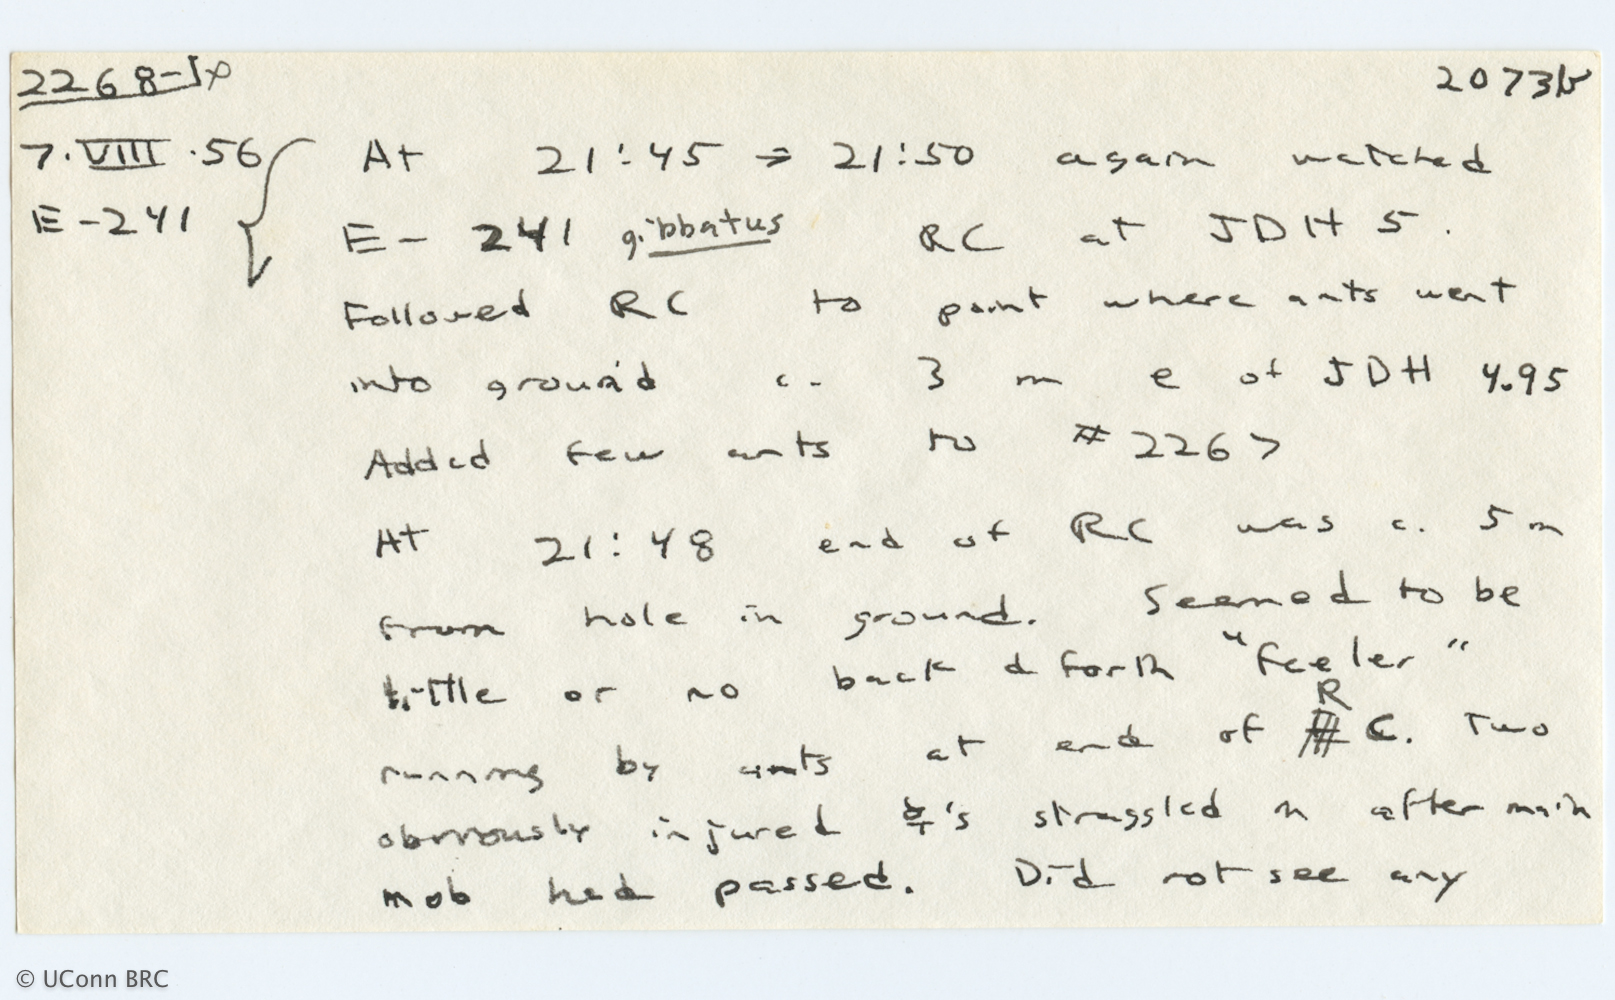 2268-Sp 2073b
7.VIII.56 At 21:45 → 21:50 again watched
E-241 E-241 gibbatus RC at JDH 5.
Followed RC to point where ants went
into ground c. 3 m e of JDH 4.95
Added few ants to #2267
At 21:48 end of RC was c. 5 m
from hole in ground. Seemed to be
little or no back & forth "feeler"
running by ants at end of RC. Two
obviously injured ☿'s straggled in after main
mob had passed. Did not see any
© UConn BRC